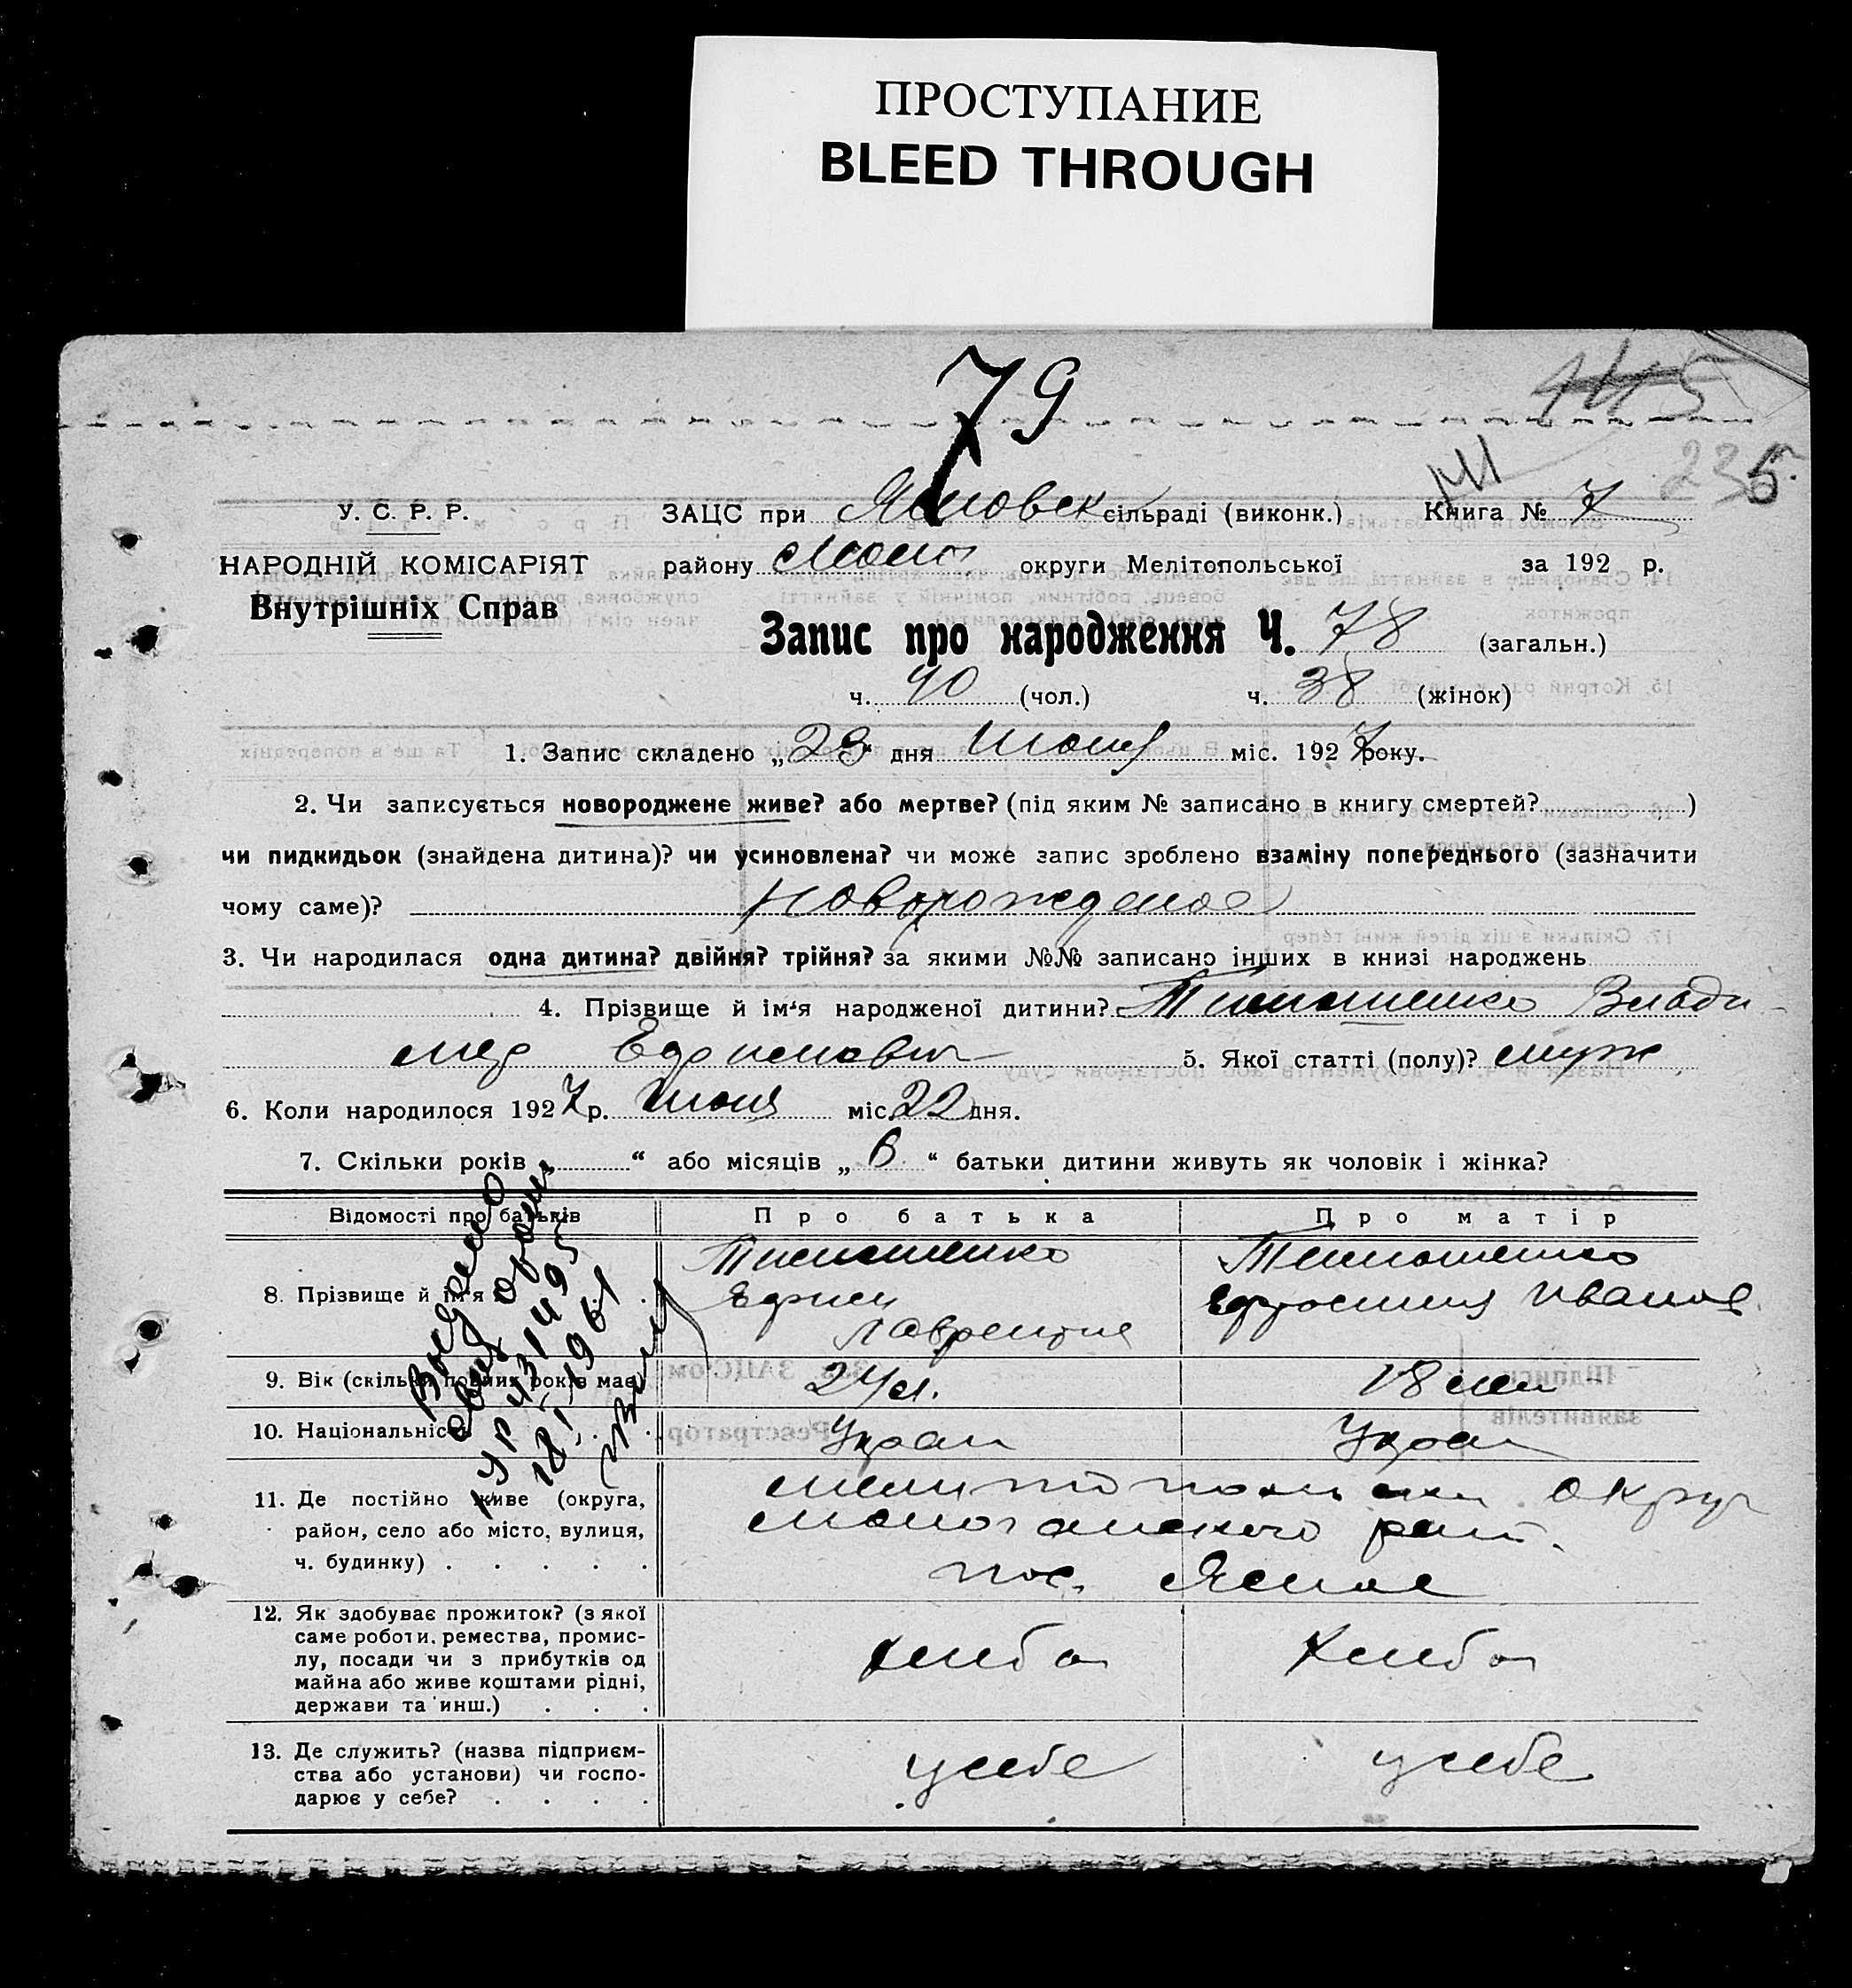 ПРОСТУПАНИЕ
BLEED THROUGH
79
445
235
У. С. Р. Р. ЗАЦС при Ясновск сільраді (виконк.) Книга № 7
НАРОДНІЙ КОМІСАРІЯТ району округи Мелітопольської за 192 р.
Внутрішніх Справ
Запис про народження Ч. 78 (загальн.)
ч. 40 (чол.) ч. 38 (жінок)
1. Запис складено „23“ дня Июня міс. 1927 року.
2. Чи записується новороджене живе? або мертве? (під яким № записано в книгу смертей? )
чи пидкидьок (знайдена дитина)? чи усиновлена? чи може запис зроблено взаміну попереднього (зазначити
чому саме)? Новорожденое
3. Чи народилася одна дитина? двійня? трійня? за якими №№ записано інших в книзі народжень
4. Прізвище й ім‘я народженої дитини? Тимошенко Влади-
мер Ефимович 5. Якої статті (полу)? муж
6. Коли народилося 1927 р. Июня міс. 22 дня.
7. Скільки років „ “ або місяців „ 6 “ батьки дитини живуть як чоловік і жінка?
Відомості про батьків Про батька Про матір
8. Прізвище й ім‘я Тимошенко Тимошенко
Ефим Ефросиния Иванов
Лаврентие
9. Вік (скільки повних років має) 24 л. 18 лет
10. Національність Украи Украи
11. Де постійно живе (округа, район, село або місто, вулиця, ч. будинку) Мелитопольски округ
район.
пос. Ясное
12. Як здобуває прожиток? (з якої
саме роботи, ремества, промис-
лу, посади чи з прибутків од
майна або живе коштами рідні,
держави та инш.) хлеб хлеб
13. Де служить? (назва підприєм-
ства або установи) чи госпо-
дарює у себе? у себе у себе
Выдано